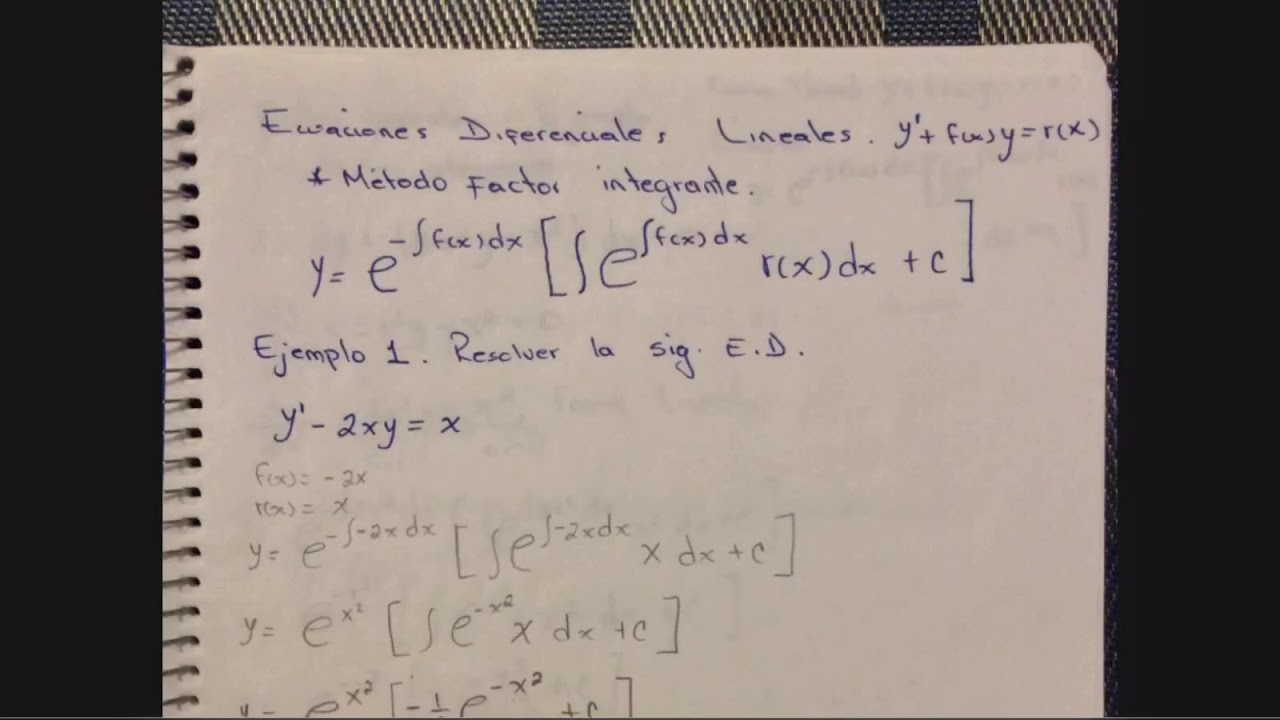 Ecuaciones Diferenciales Lineales. y' + f(x)y = r(x)
* Método Factor integrante.
y = e^{-∫f(x)dx} [∫e^{∫f(x)dx} r(x)dx + c]
Ejemplo 1. Resolver la sig. E.D.
y' - 2xy = x
f(x) = -2x
r(x) = x
y = e^{-∫-2x dx} [∫e^{∫-2xdx} x dx + c]
y = e^{x²} [∫e^{-x²} x dx + c]
y = e^{x²} [-1/ e^{-x²} + c]